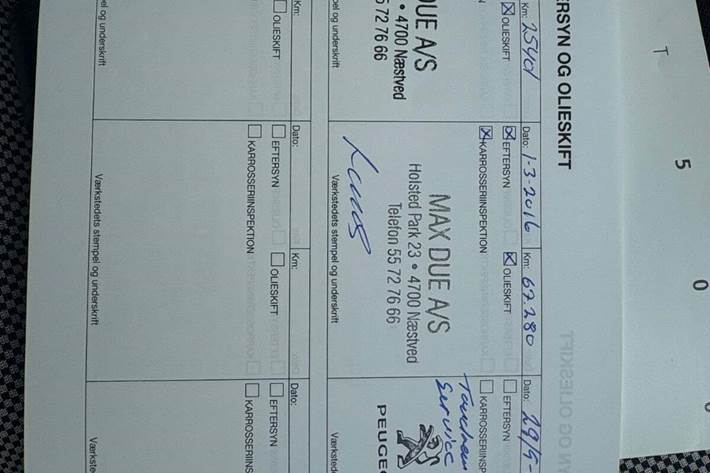 ERSYN OG OLIESKIFT
Km: 25401
OLIESKIFT
DUE A/S
• 4700 Næstved
5 72 76 66
pel og underskrift
Dato: 1-3-2016 Km: 67.280
EFTERSYN OLIESKIFT
KARROSSERIINSPEKTION
MAX DUE A/S
Holsted Park 23 • 4700 Næstved
Telefon 55 72 76 66
Værkstedets stempel og underskrift
Dato: 29/9-
EFTERSYN
KARROSSERIINS
Service
PEUGEO
Værksted
Km:
OLIESKIFT
pel og underskrift
Dato: Km:
EFTERSYN OLIESKIFT
KARROSSERIINSPEKTION
Værkstedets stempel og underskrift
Dato:
EFTERSYN
KARROSSERIINS
Værksted
T
5
0